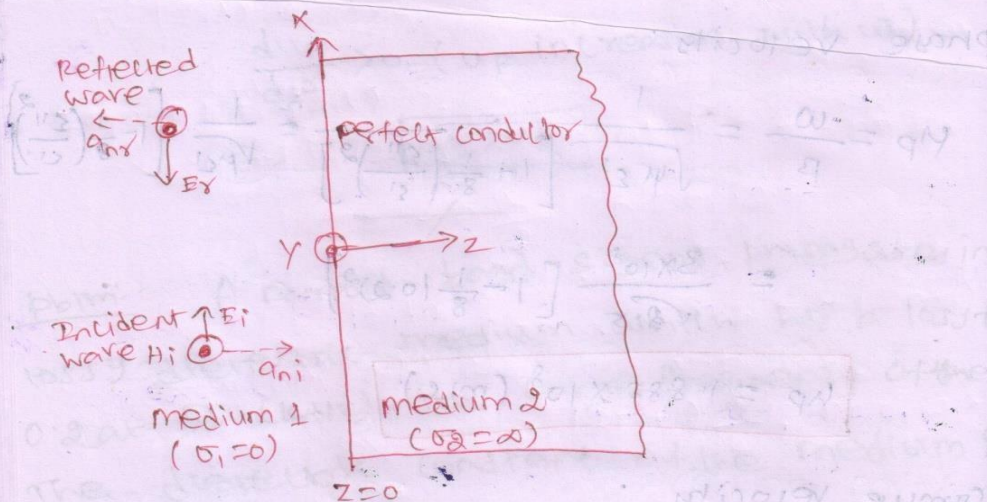 X
Reflected
wave
anr
Er
perfect conductor
Y
Z
Incident Ei
wave Hi
ani
medium 1
(σ₁=0)
medium 2
(σ₂=∞)
Z=0